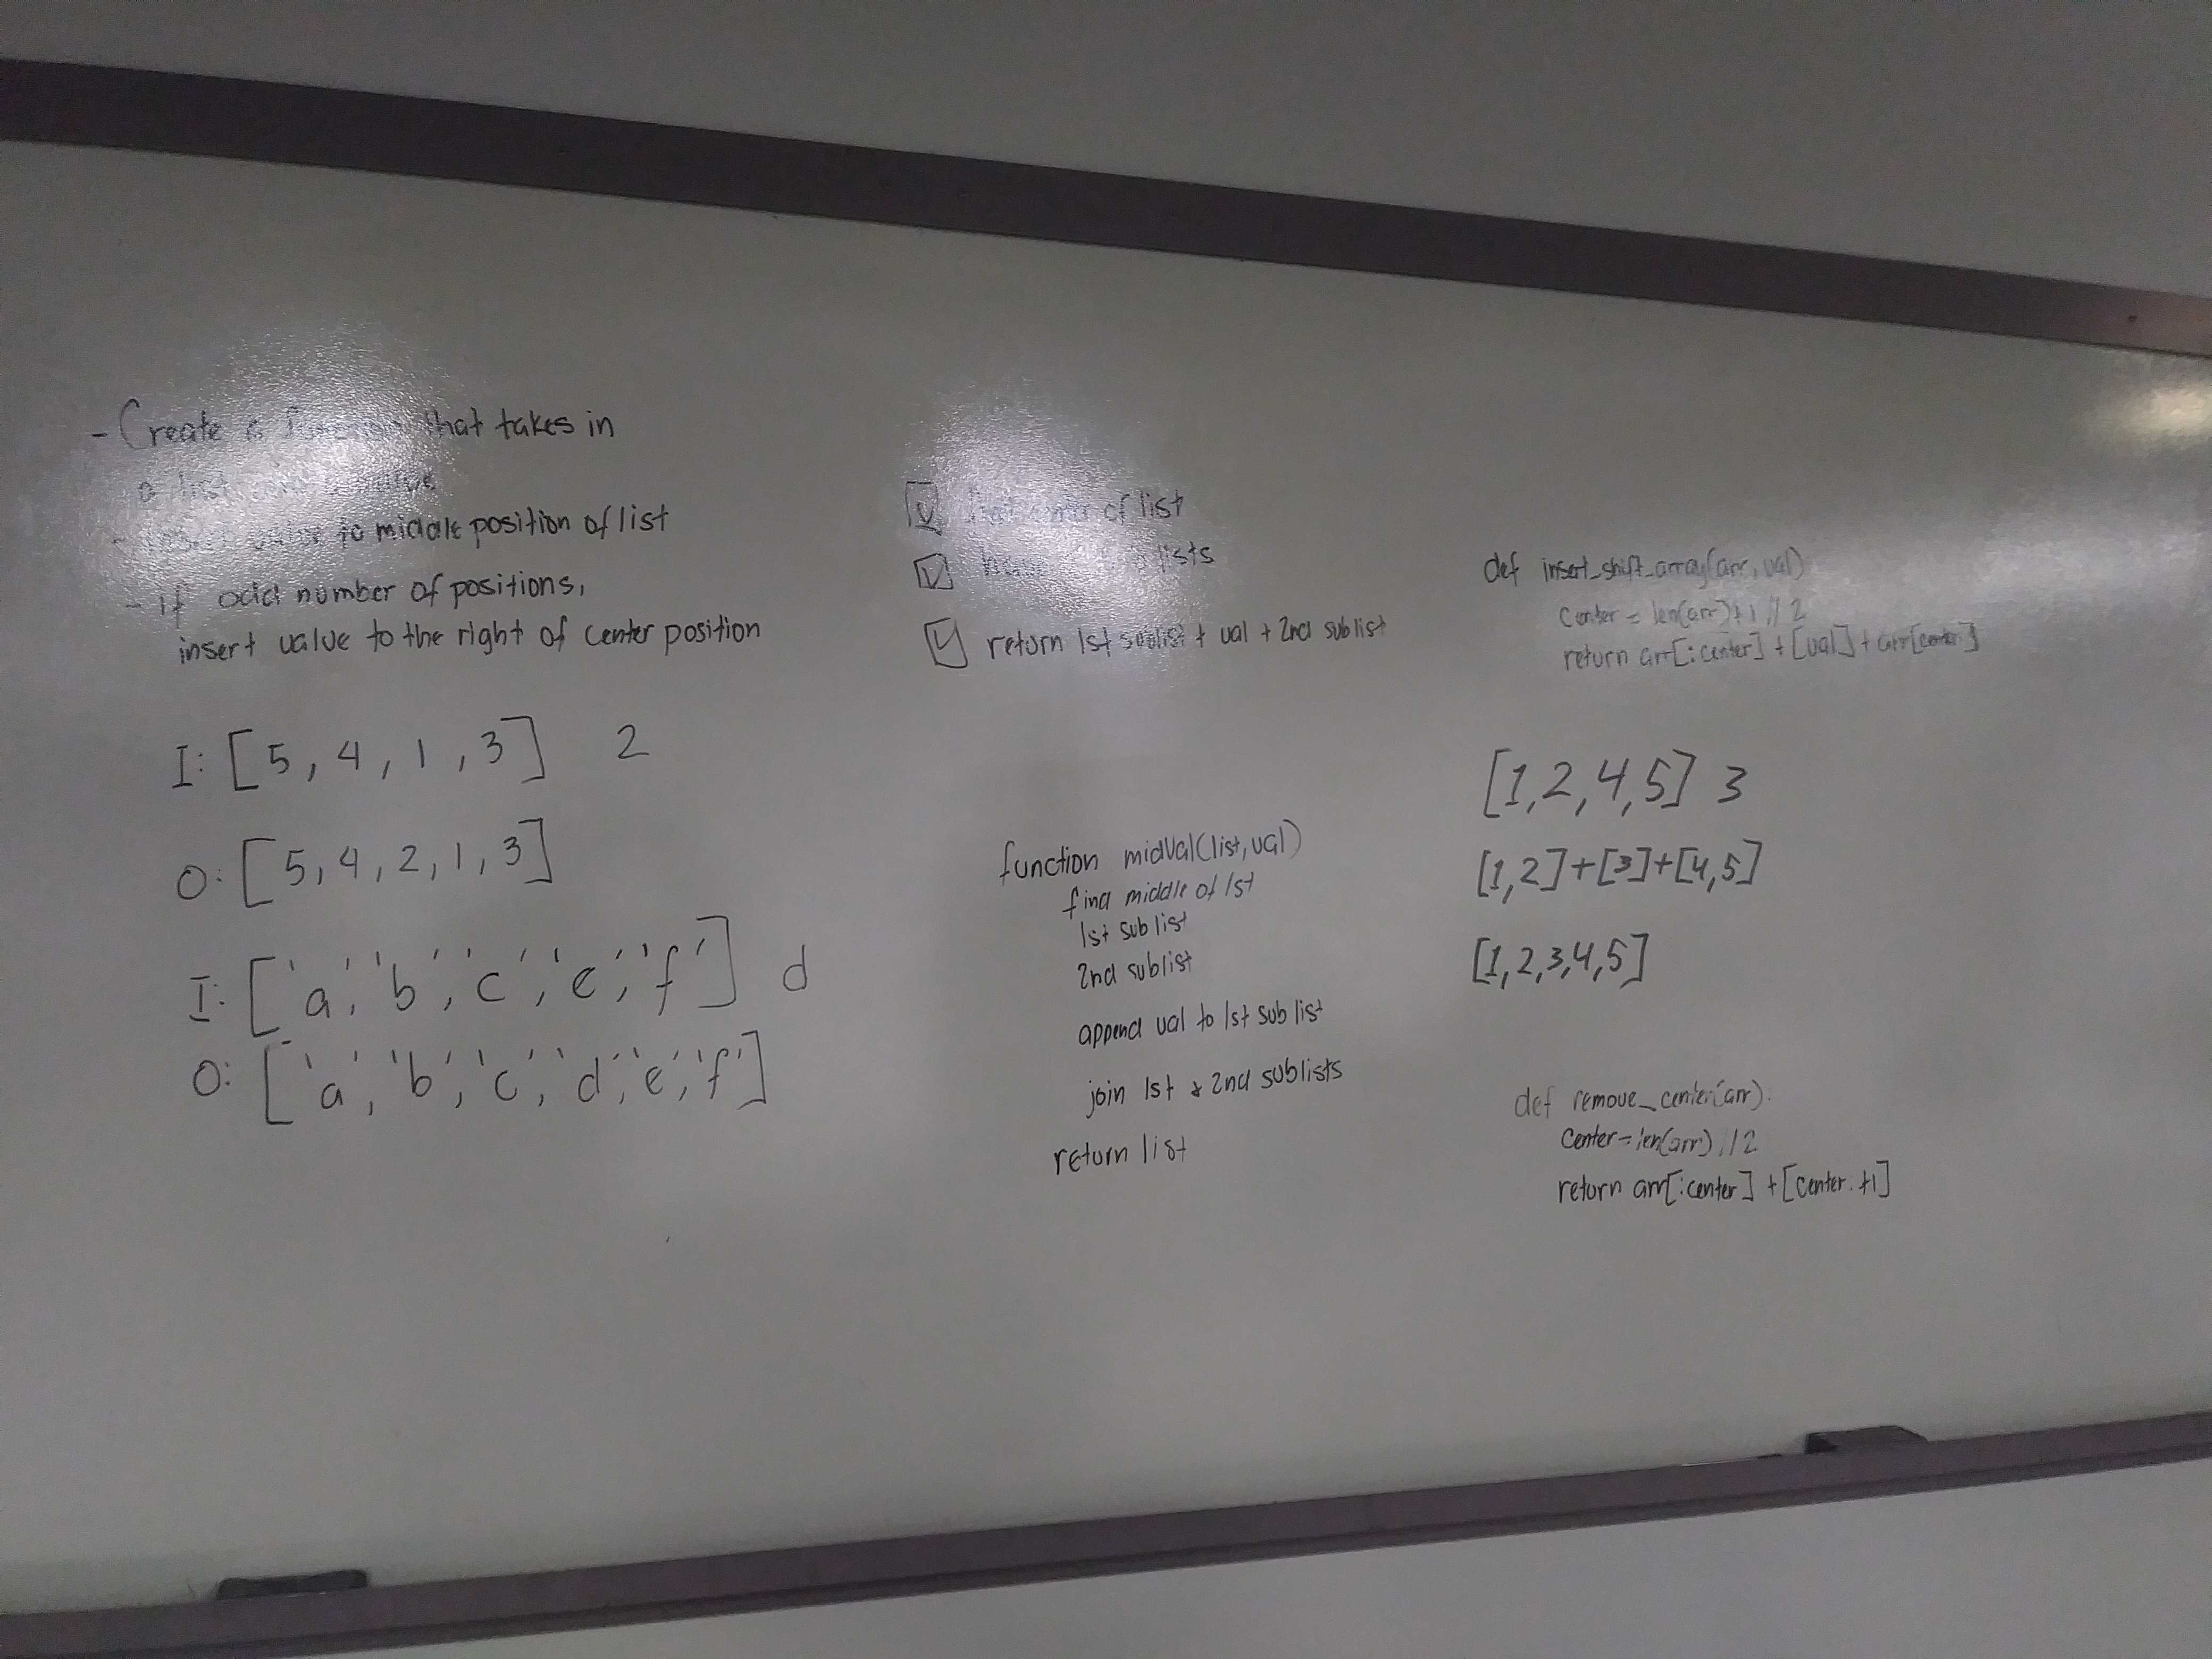 - Create a function that takes in
a list and a value
- insert value to middle position of list
- if odd number of positions,
insert value to the right of center position
I: [5, 4, 1, 3] 2
O: [5, 4, 2, 1, 3]
I: ['a', 'b', 'c', 'e', 'f'] d
O: ['a', 'b', 'c', 'd', 'e', 'f']
of list
lists
return 1st sublist + val + 2nd sublist
function midVal(list, val)
find middle of lst
1st sublist
2nd sublist
append val to 1st sublist
join 1st & 2nd sublists
return list
def insert_shift_array(arr, val)
center = len(arr)+1 // 2
return arr[:center] + [val] + arr[center:]
[1,2,4,5] 3
[1,2]+[3]+[4,5]
[1,2,3,4,5]
def remove_center(arr):
center = len(arr) // 2
return arr[:center] + [center: +1]